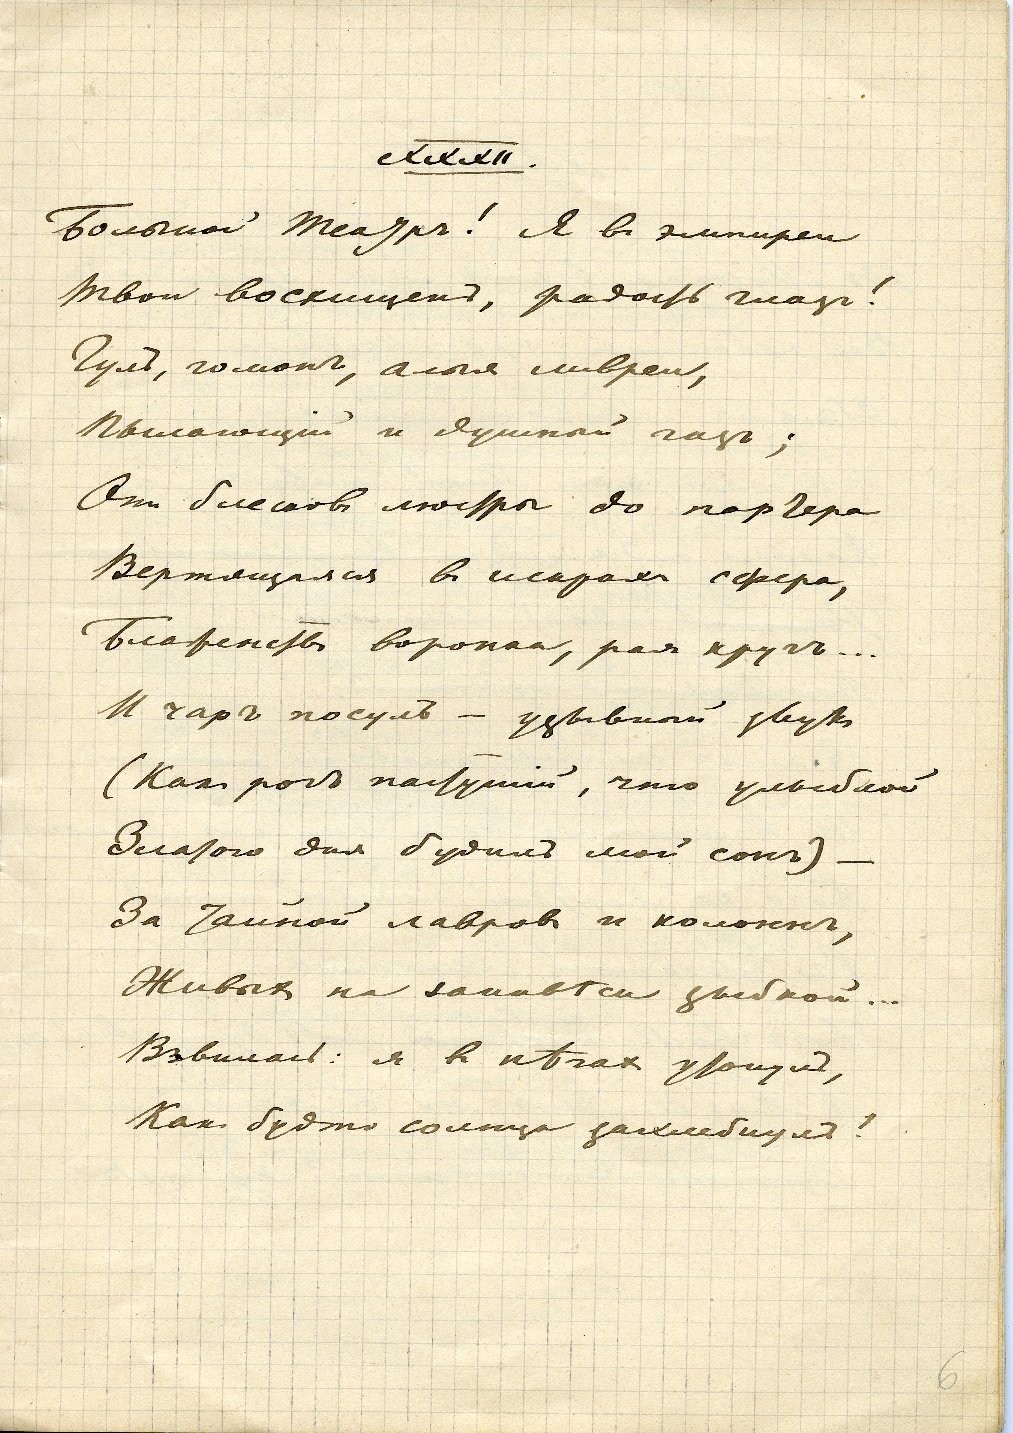 XXXII.
Большой Театръ! Я въ эмпиреи
Твои восхищенъ, радость глазъ!
Гулъ, гомонъ, алыя ливреи,
Пылающій и душный газъ;
Отъ блесковъ люстры до партера
Вертящаяся въ искрахъ сфера,
Блаженствъ воронка, рая кругъ...
И чаръ посулъ — призывный звукъ
(Какъ рогъ пастушій, что улыбкой
Златого дня будилъ мой сонъ) —
За тайной лавровъ и колоннъ,
Живыхъ на занавѣси зыбкой...
Взвилась: я въ нѣгахъ утонулъ,
Какъ будто солнца захлебнулъ!
6